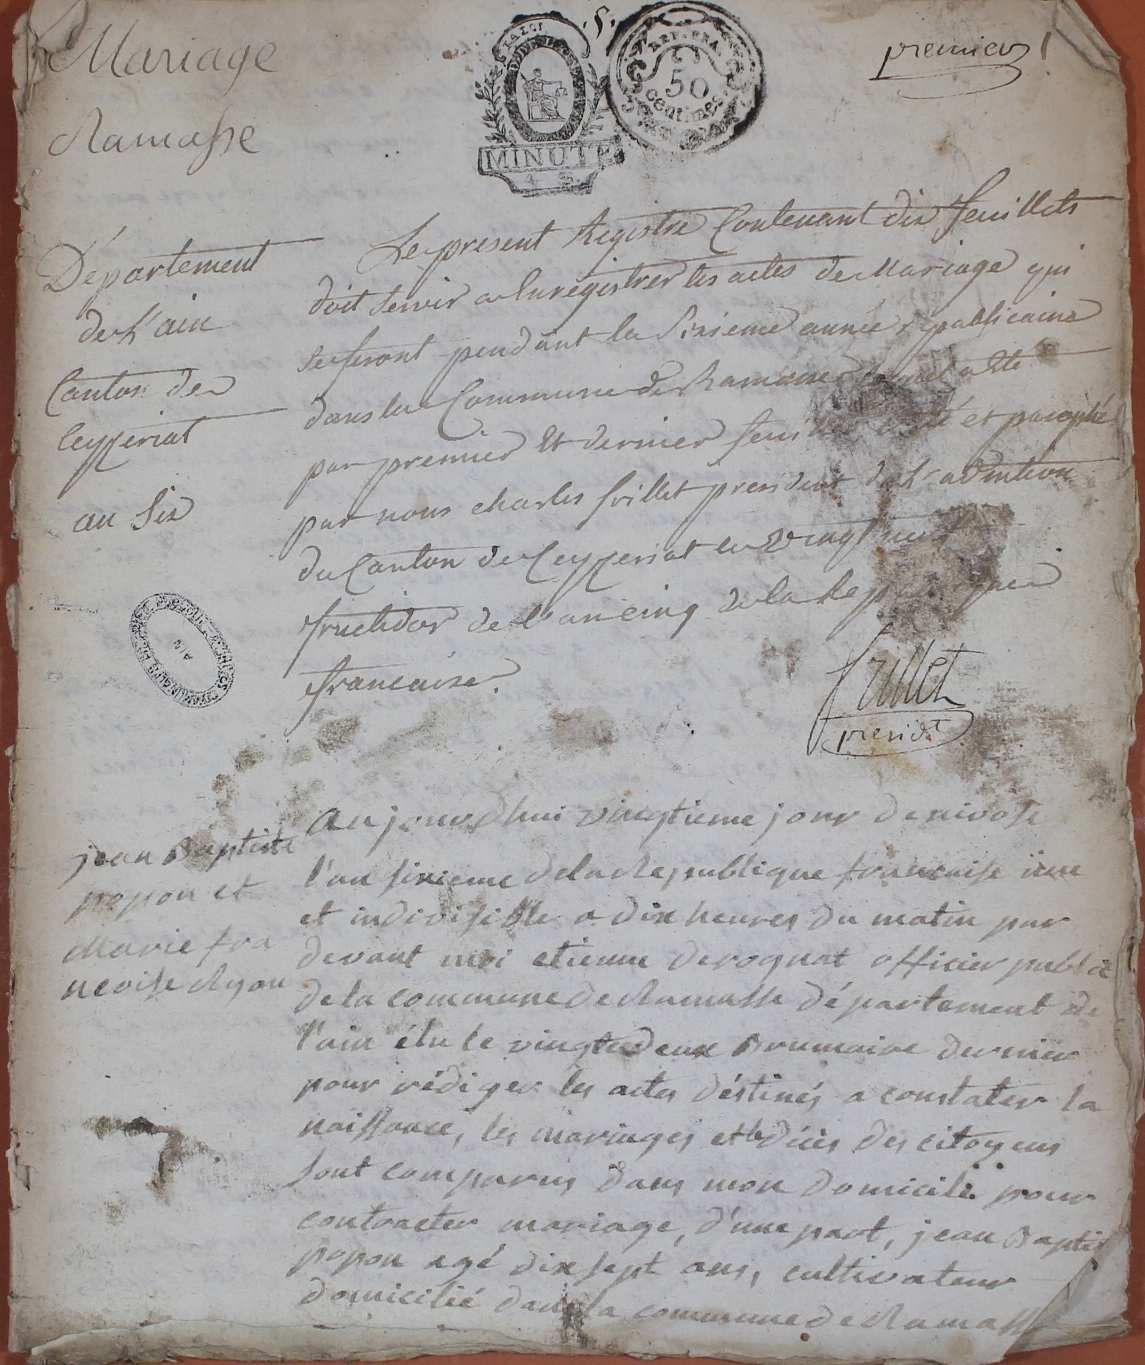 Mariage
Ramasse
MINUTE
REP. FRA.
50
centimes
premier
Département
de L'ain
Canton de
Ceyzeriat
an Six
Le present Registre Contenant dix feuillets
doit servir a Enregistrer les actes de Mariage qui
se feront pendant la Sixieme année republicaine
dans la Commune de Ramasse a été
par premier et dernier feuillet coté et paraphé
par nous charles frillet president de L'adm̄tion
du Canton de Ceyzeriat le vingt
fructidor de L'an cinq de la Republique
francaise.
frillet
presidt
AIN
jean Baptiste
popon et
Marie fra
ncoise Ryon
aujourdhui vingtieme jour de nivose
l'an sixieme de la Republique francaise une
et indivisible a dix heures du matin par
devant moi etienne derognat officier public
de la commune de Ramasse département de
l'ain élu le vingt deux Brumaire dernier
pour rédiger les actes déstinés a constater la
naissance, les mariages et decès des citoyens
sont comparus dans mon domicile pour
contracter mariage, d'une part, jean Baptis
popon agé dix sept ans, cultivateur
domicilié dans la commune de Ramasse